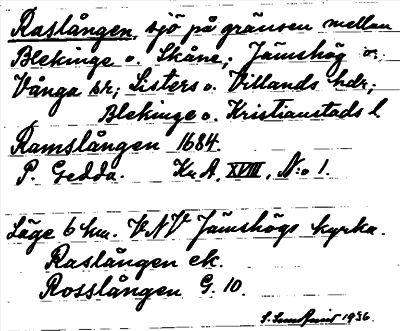 Raslången, sjö på gränsen mellan
Blekinge o. Skåne; Jämshög o.
Vånga sr; Listers o. Villands hdr;
Blekinge o. Kristianstads l
Ramslången 1684.
P. Gedda. Kr. A. XVIII, N:o 1.
Läge 6 km. VNV Jämshögs kyrka.
Raslången ek.
Rosslången G. 10.
1936.